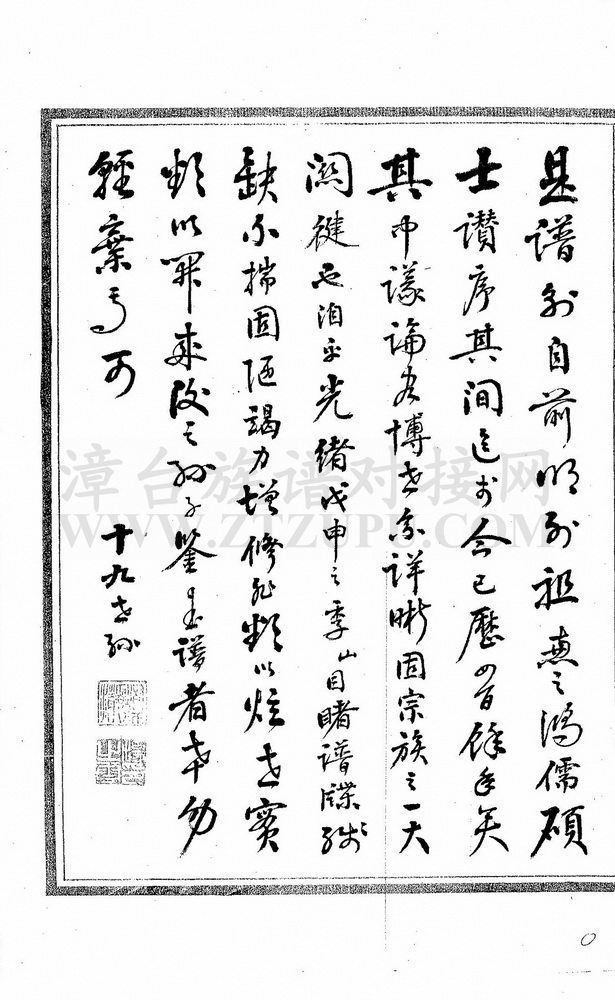 是譜創自前明列祖惠之鴻儒碩
士讚序其間迄於今已歷四百餘年矣
其中議論宏博世系詳晰固宗族之一大
關鍵也洎乎光緒戊申之季山目睹譜牒殘
缺不揣固陋竭力增修非斁以炫世實
斁以畀來後之孫子鑒畫譜者幸勿
輕棄焉可
十九世孫
漳台族谱对接网
WWW.ZTZUPU.COM
0